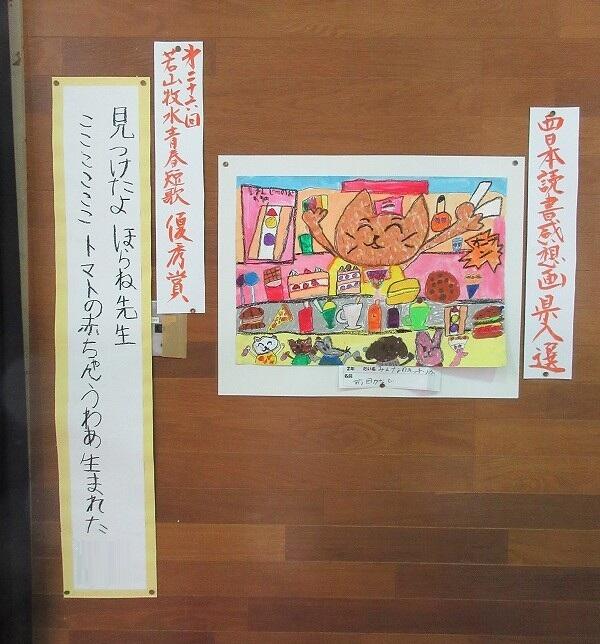 西日本読書感想画 県入選
オープン
2年 だい名
名前
第二十六回
若山牧水青春短歌 優秀賞
見つけたよ ほらね先生
こここここ トマトの赤ちゃん うわあ生まれた